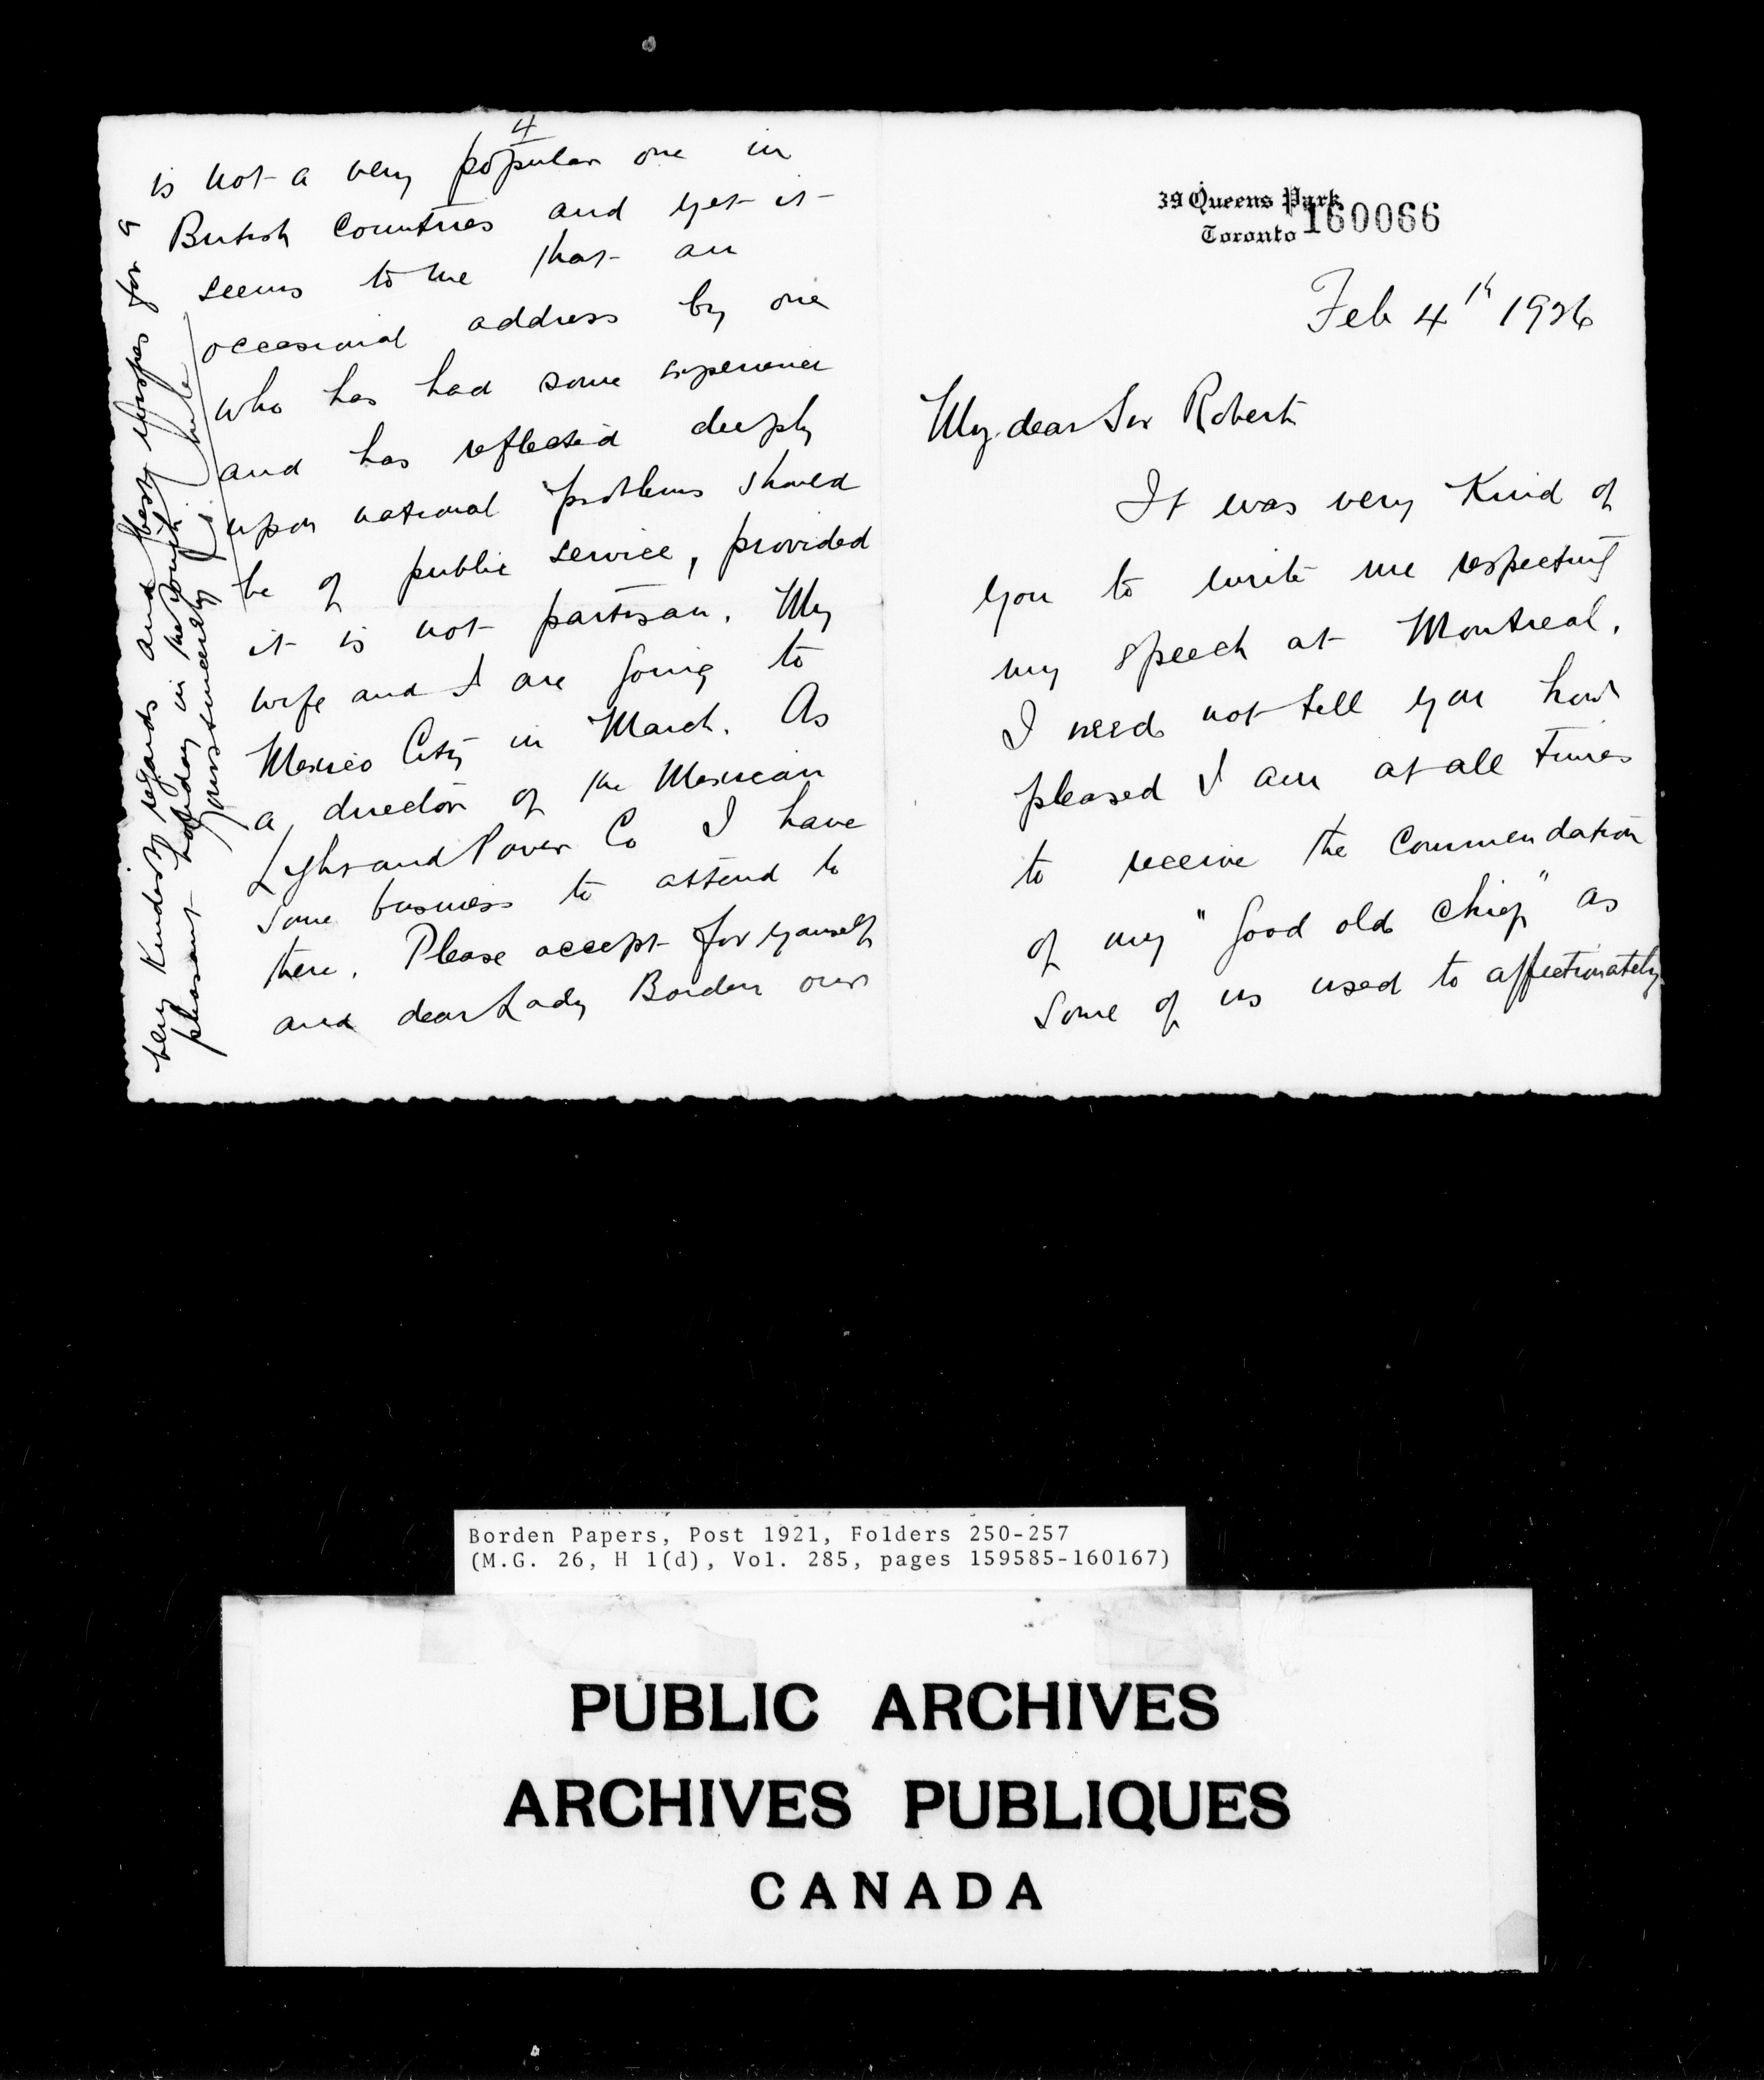 4
is not a very popular one in
British Countries and yet it
seems to me that an
occasional address by one
who has had some experience
and has reflected deeply
upon national problems should
be of public service, provided
it is not partisan. My
wife and I are going to
Mexico City in March. As
a director of the Mexican
Light and Power Co I have
some business to attend to
there. Please accept for yourself
and dear Lady Borden our
very kindest regards and best wishes for a
pleasant holiday in the South.
Yours sincerely
39 Queens Park
Toronto
160066
Feb 4th 1926
My dear Sir Robert
It was very Kind of
you to write me respecting
my speech at Montreal.
I need not tell you how
pleased I am at all times
to receive the Commendation
of my "good old chief" as
some of us used to affectionately
Borden Papers, Post 1921, Folders 250-257
(M.G. 26, H 1(d), Vol. 285, pages 159585-160167)
PUBLIC ARCHIVES
ARCHIVES PUBLIQUES
CANADA